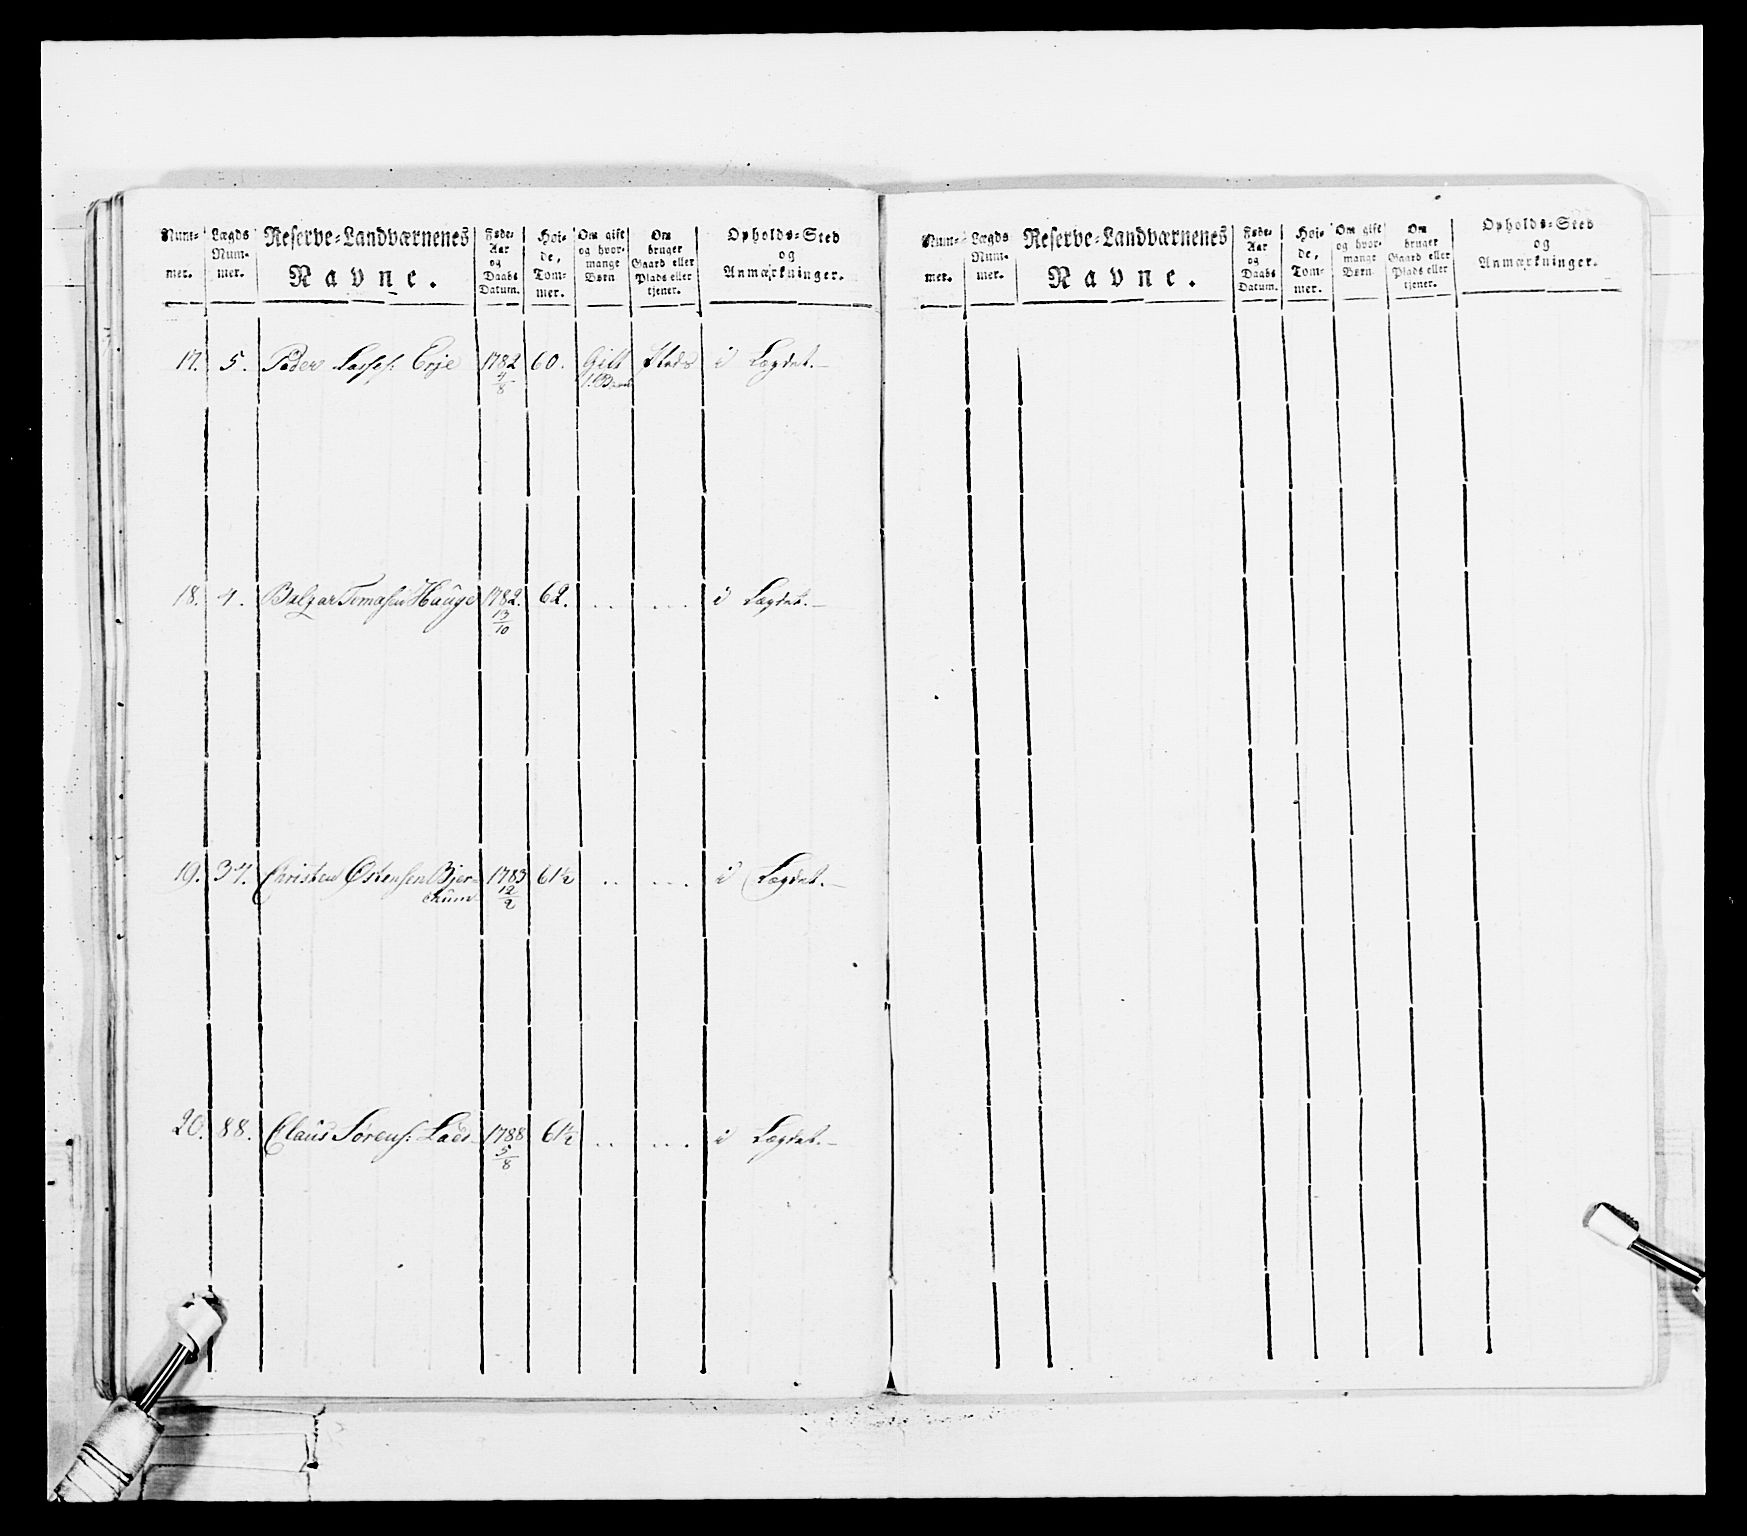 Num-
mer.
Lægds
Num-
mer.
Reserve-Landværnenes
Navne.
Føde-
Aar
og
Daabs
Datum.
Høi-
de,
Tom-
mer.
Om gift
og hvor-
mange
Børn
Om
bruger
Gaard eller
Plads eller
tjener.
Opholds-Sted
og
Anmærkninger.
17. 5. Peder Lasses: Erje 1782 60. Gift Plads i Lægdet.
4/8 1. Barn
18. 4. Balzar Tomasen Hauge 1782. 62. .. ... i Lægdet.
13/10
19. 37. Christen Østensen Bjer- 1783 61½ .. ... i Lægdet.
chum 12/2
20. 88. Claus Sørens: Lae 1788 61½ .. ... i Lægdet.
5/8
Num-
mer.
Lægds
Num-
mer.
Reserve-Landværnenes
Navne.
Føde-
Aar
og
Daabs
Datum.
Høi-
de,
Tom-
mer.
Om gift
og hvor-
mange
Børn
Om
bruger
Gaard eller
Plads eller
tjener.
Opholds-Sted
og
Anmærkninger.